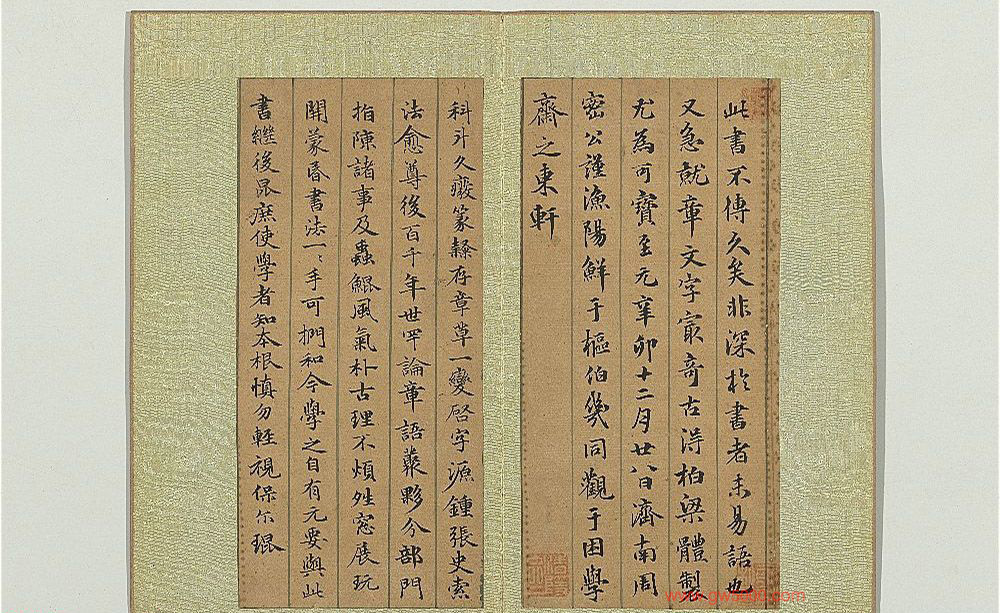 此書不傳久矣非深於書者未易語也
又急就章文字冣奇古得柏梁體製
尤為可寶至元辛卯十二月廿八日濟南周
密公謹漁陽鮮于樞伯幾同觀于困學
齋之東軒
科斗久廢篆隸存章草一變啓字源鍾張史索
法愈尊後百千年世罕論章語叢夥分部門
指陳諸事及蟲鯤風氣朴古理不煩夝窓展玩
開蒙昏書法一〻手可捫和今學之自有元要與此
書繼後昆庶使學者知本根慎勿輕視保尒琨